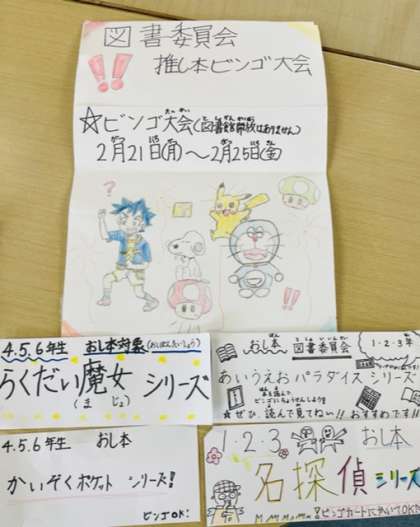 図書委員会
!! 推し本ビンゴ大会
☆ビンゴ大会(図書館開放はありません)
2月21日(月)〜2月25日(金)
?
?
!!
4.5.6年生 おし本対象(おしほんたいしょう)
らくだい魔女シリーズ
(まじょ)
おし本 図書委員会 1・2・3年
あいうえおパラダイス シリーズ
☆ぜひ、読んで見てね!!おすすめです!!
4.5.6年生 おし本
かいぞくポケット シリーズ!
ビンゴOK!
1・2・3 おし本
名探偵シリーズ
ビンゴカードにかいてOK